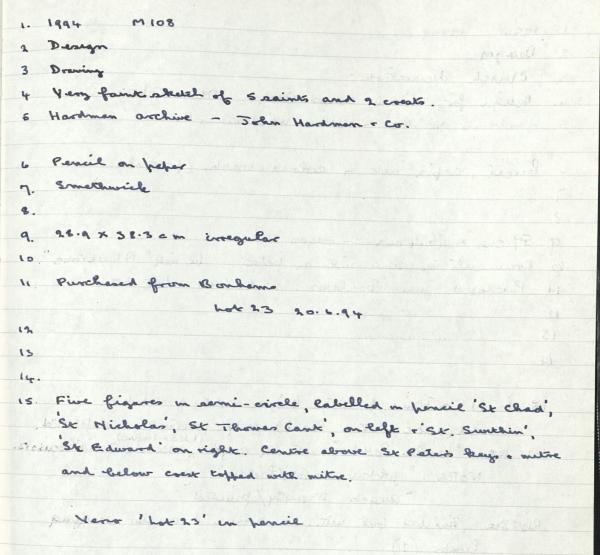 1. 1994 M108
2 Design
3 Drawing
4 Very faint sketch of 5 saints and 2 crests.
5 Hardman archive - John Hardman & Co.
6 Pencil on paper
7. Smethwick
8.
9. 28.9 x 38.3 cm irregular
10
11 Purchased from Bonhams
Lot 23 20.6.94
12
13
14.
15. Five figures in semi-circle, labelled in pencil 'St Chad',
'St Nicholas', St Thomas Cant', on left & 'St. Swithin',
'St Edward' on right. Centre above St Peter's keys & mitre
and below crest topped with mitre.
Verso 'Lot 23' in pencil